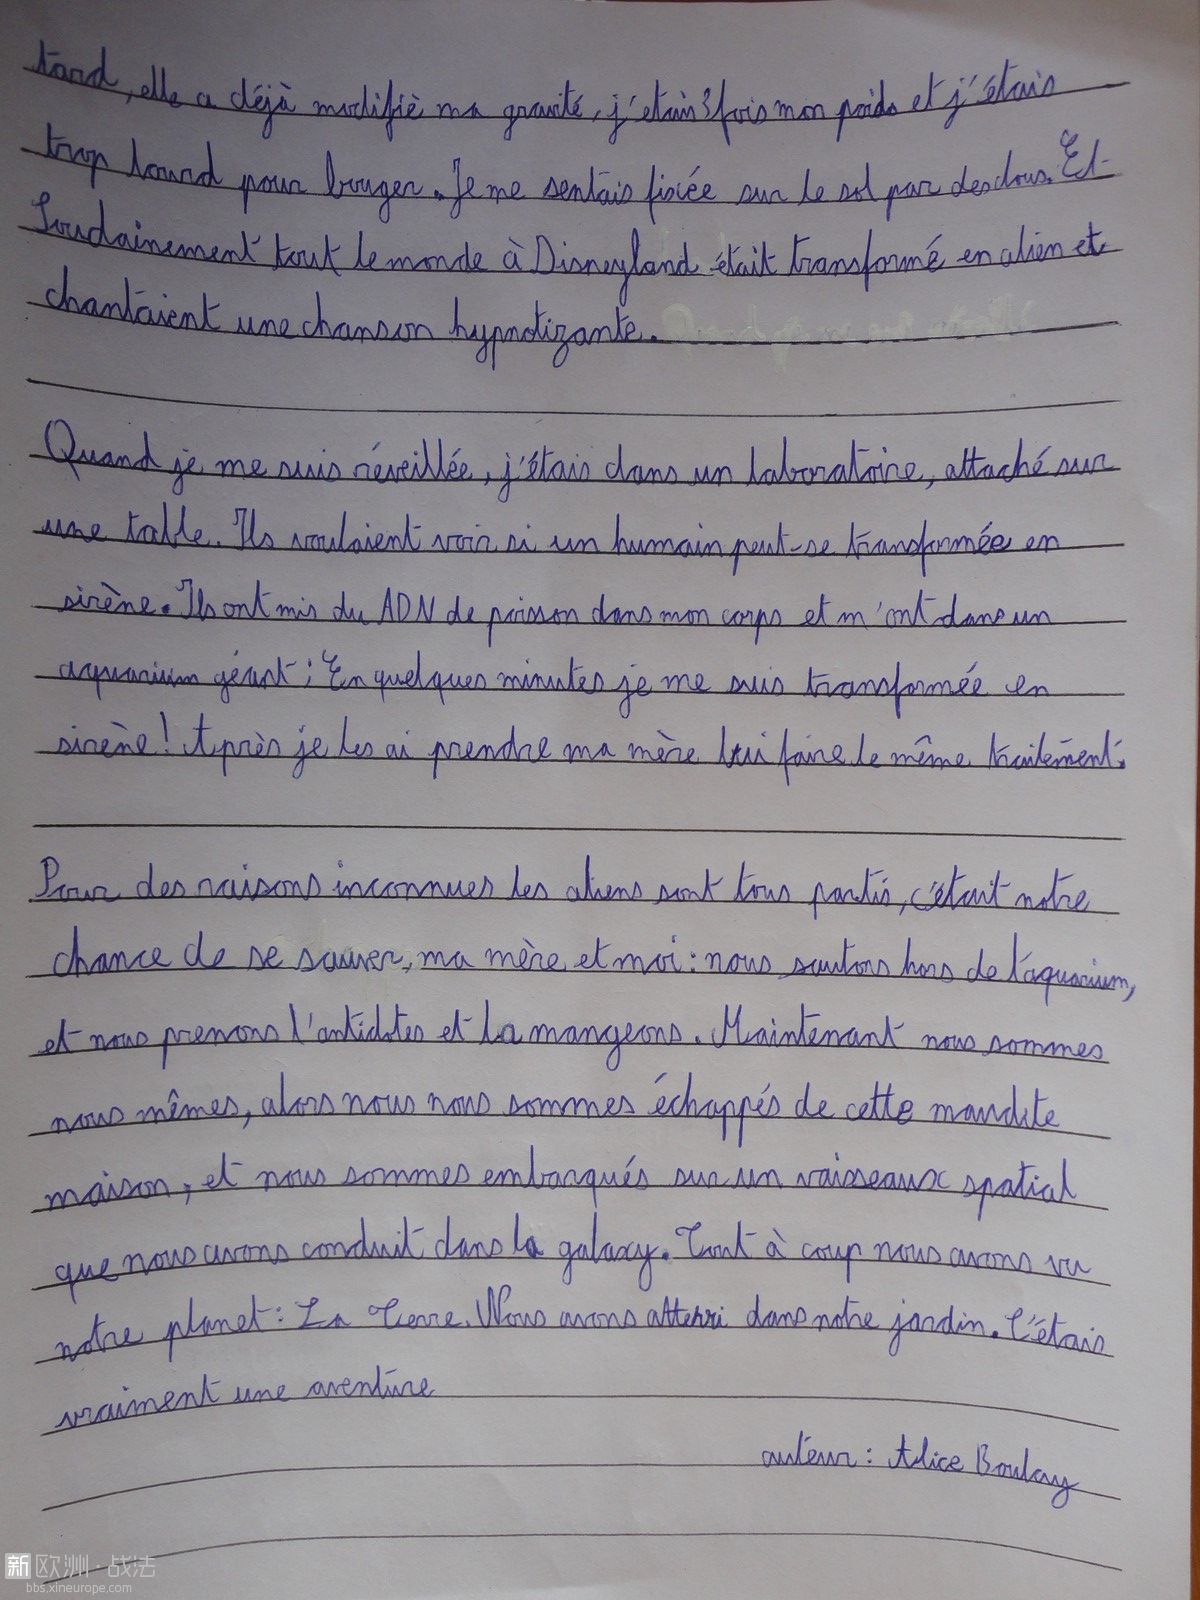 tard, elle a déjà modifiè ma gravité, j'etais 3 fois mon poids et j'étais
trop lourd pour bouger. Je me sentais fixée sur le sol par desdous. Et
Soudainement tout le monde à Disneyland était transformé en alien et
chantaient une chanson hypnotizante.
Quand je me suis réveillée, j'étais dans un laboratoire, attaché sur
une table. Ils voulaient voir si un humain peut-se transformée en
sirène. Ils ont mis du ADN de poisson dans mon corps et m'ont dans un
aquarium géant; En quelques minutes je me suis transformée en
sirène! Après je les ai prendre ma mère lui faire le même traitement.
Pour des raisons inconnues les aliens sont tous partis, c'était notre
chance de se sauver, ma mère et moi: nous sautons hors de l'aquarium,
et nous prenons l'antidotes et la mangeons. Maintenant nous sommes
nous mêmes, alors nous nous sommes échappés de cette maudite
maison, et nous sommes embarqués sur un vaisseaux spatial
que nous avons conduit dans la galaxy. Tout à coup nous avons vu
notre planet: La Terre. Nous avons atterri dans notre jardin. C'étais
vraiment une aventure
auteur: Alice Boulay
新欧洲·战法
bbs.xineurope.com